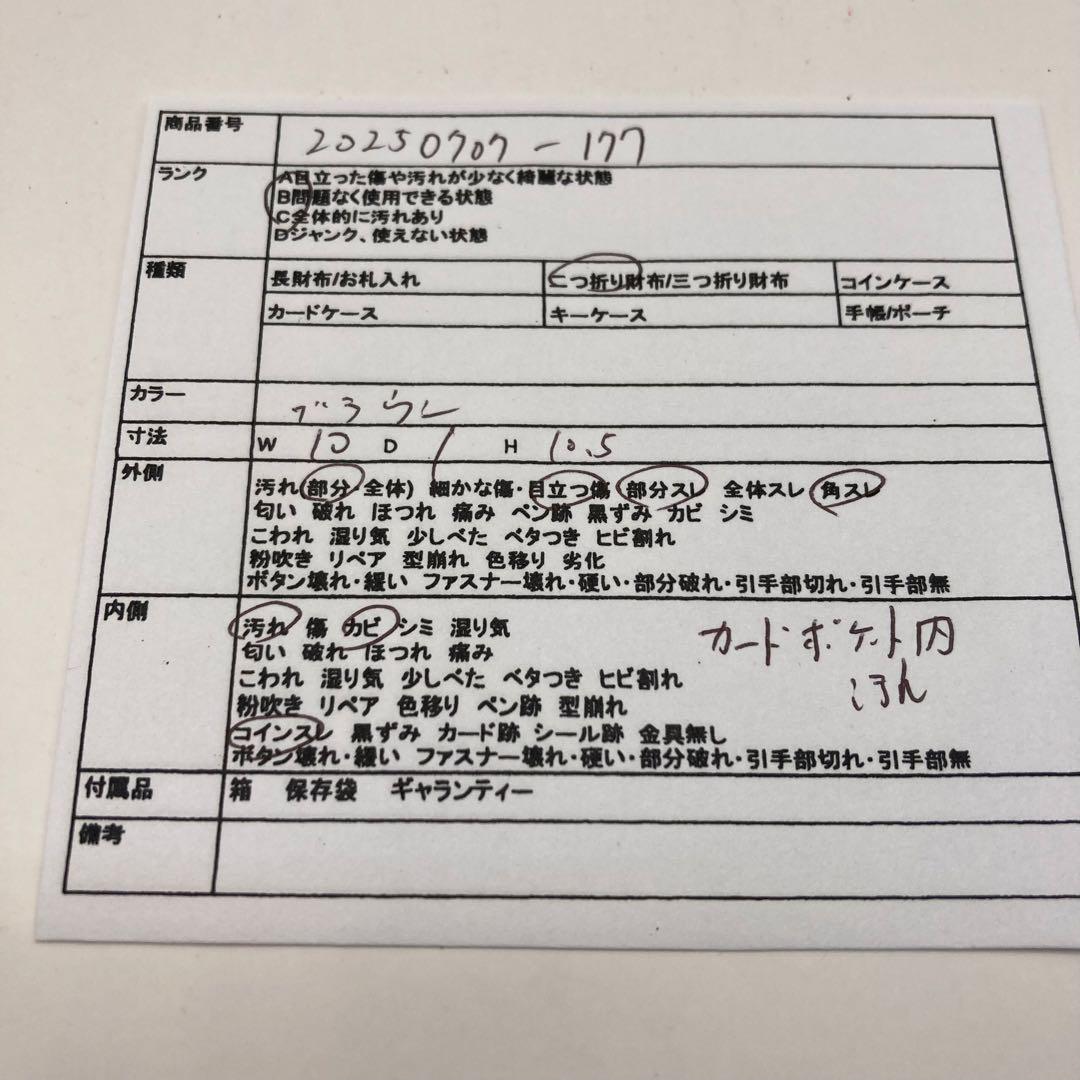 商品番号 20250707-177
ランク A目立った傷や汚れが少なく綺麗な状態
B問題なく使用できる状態
C全体的に汚れあり
Dジャンク、使えない状態
種類 長財布/お札入れ 二つ折り財布/三つ折り財布 コインケース
カードケース キーケース 手帳/ポーチ
カラー ブラウン
寸法 W 10 D 1 H 10.5
外側 汚れ(部分・全体) 細かな傷・目立つ傷 部分スレ 全体スレ 角スレ
匂い 破れ ほつれ 痛み ペン跡 黒ずみ カビ シミ
こわれ 湿り気 少しべた ベタつき ヒビ割れ
粉吹き リペア 型崩れ 色移り 劣化
ボタン壊れ・緩い ファスナー壊れ・硬い・部分破れ・引手部切れ・引手部無
内側 汚れ 傷 カビ シミ 湿り気
匂い 破れ ほつれ 痛み
こわれ 湿り気 少しべた ベタつき ヒビ割れ
粉吹き リペア 色移り ペン跡 型崩れ
コインスレ 黒ずみ カード跡 シール跡 金具無し
ボタン壊れ・緩い ファスナー壊れ・硬い・部分破れ・引手部切れ・引手部無
カードポケット内
付属品 箱 保存袋 ギャランティー
備考